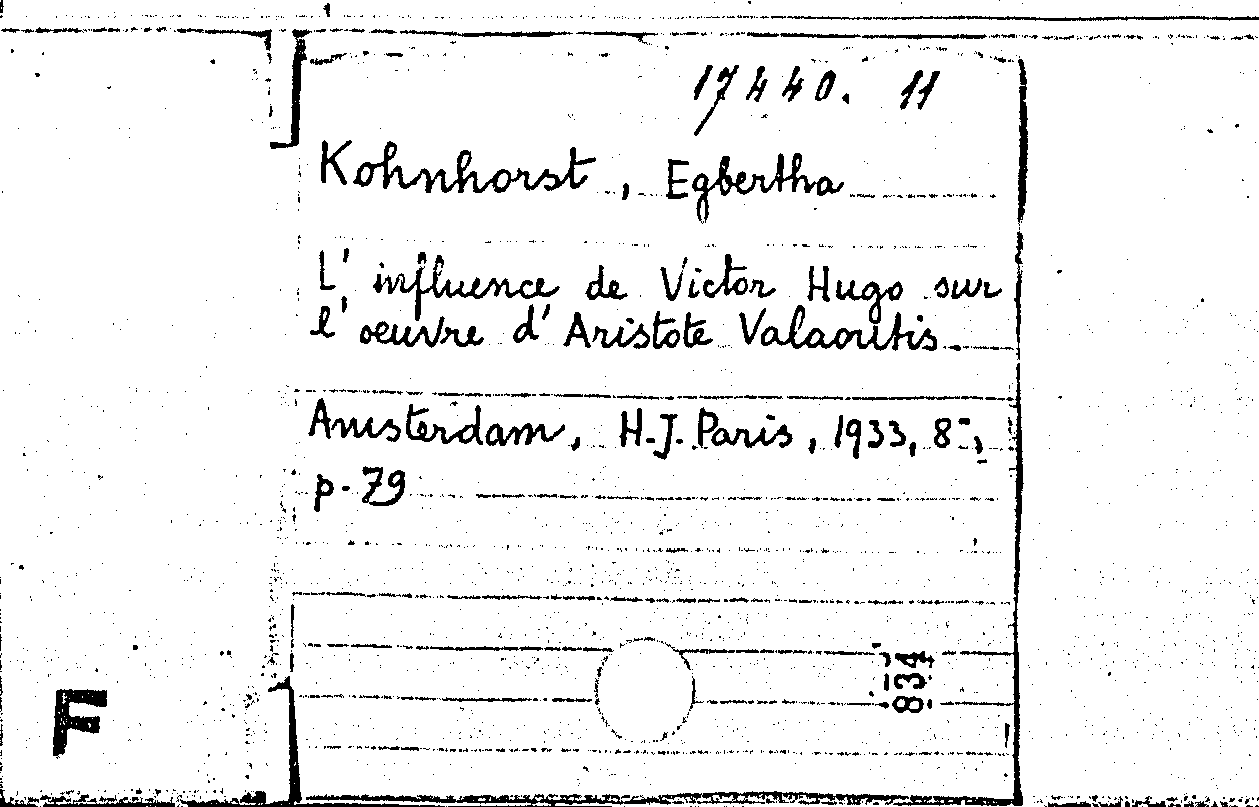 17440. 11
Kohnhorst, Egbertha
L' influence de Victor Hugo sur
l' oeuvre d' Aristote Valaoritis.
Amsterdam, H.J. Paris, 1933, 8-,
p. 79
834
F